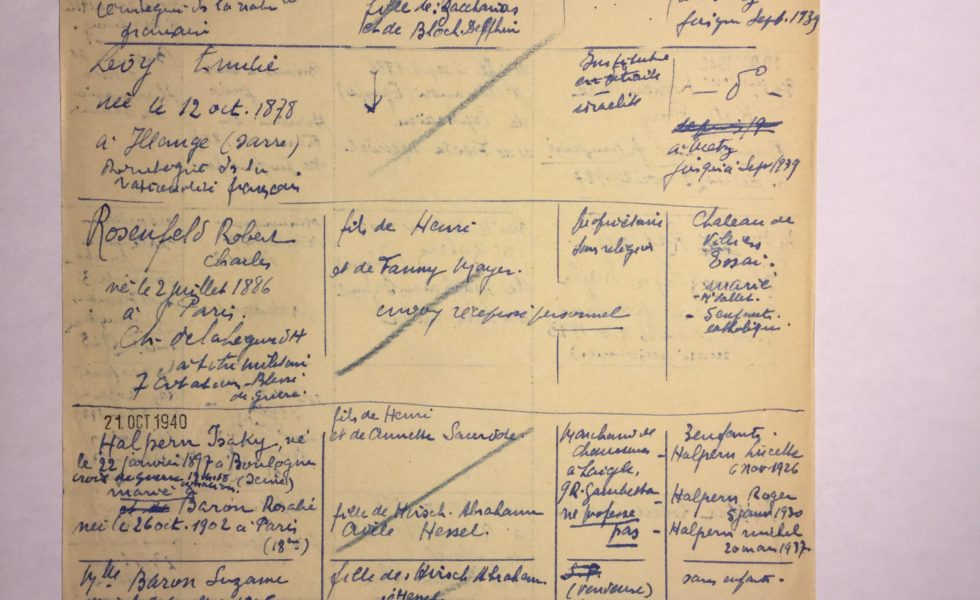 de la nation
français
fille de Zacharias
et de Bloch Delphin
jusqu'à Sept. 1939
Lévy Emilie
née le 12 oct. 1878
à Illange (Sarre)
nationalité français
Institutrice
en retraite
israélite
à Metz
jusqu'à Sept 1939
Rosenfeld Robert
Charles
né le 2 juillet 1886
à Paris.
Ch. de la Legion d'H
à titre militaire
7 citations - Blessé
de guerre.
fils de Henri
et de Fanny Mayer.
envoy récépissé personnel
propriétaire
sans religion
Chateau de
Essai.
marié
- 5 enfants.
catholique.
21 OCT 1940
Halpern Isaky, né
le 22 janvier 1897 à Boulogne
croix de guerre (Seine)
marié à
Baron Rosalie
née le 26 oct. 1902 à Paris
(18me)
fils de Henri
et de Annette Sacerdote.
fille de Hirsch Abraham
Hessel.
Marchand de
chaussures
à Laigle,
92 R. Gambetta
ne professe
pas
3 enfants.
- Halpern Lucette
6 Nov. 1926
Halpern Roger
5 janv 1930
- Halpern michel
20 mars 1937.
Mlle Baron Suzanne
fille de Hirsch Abraham
Hessel
S.P.
(vendeuse)
sans enfants.